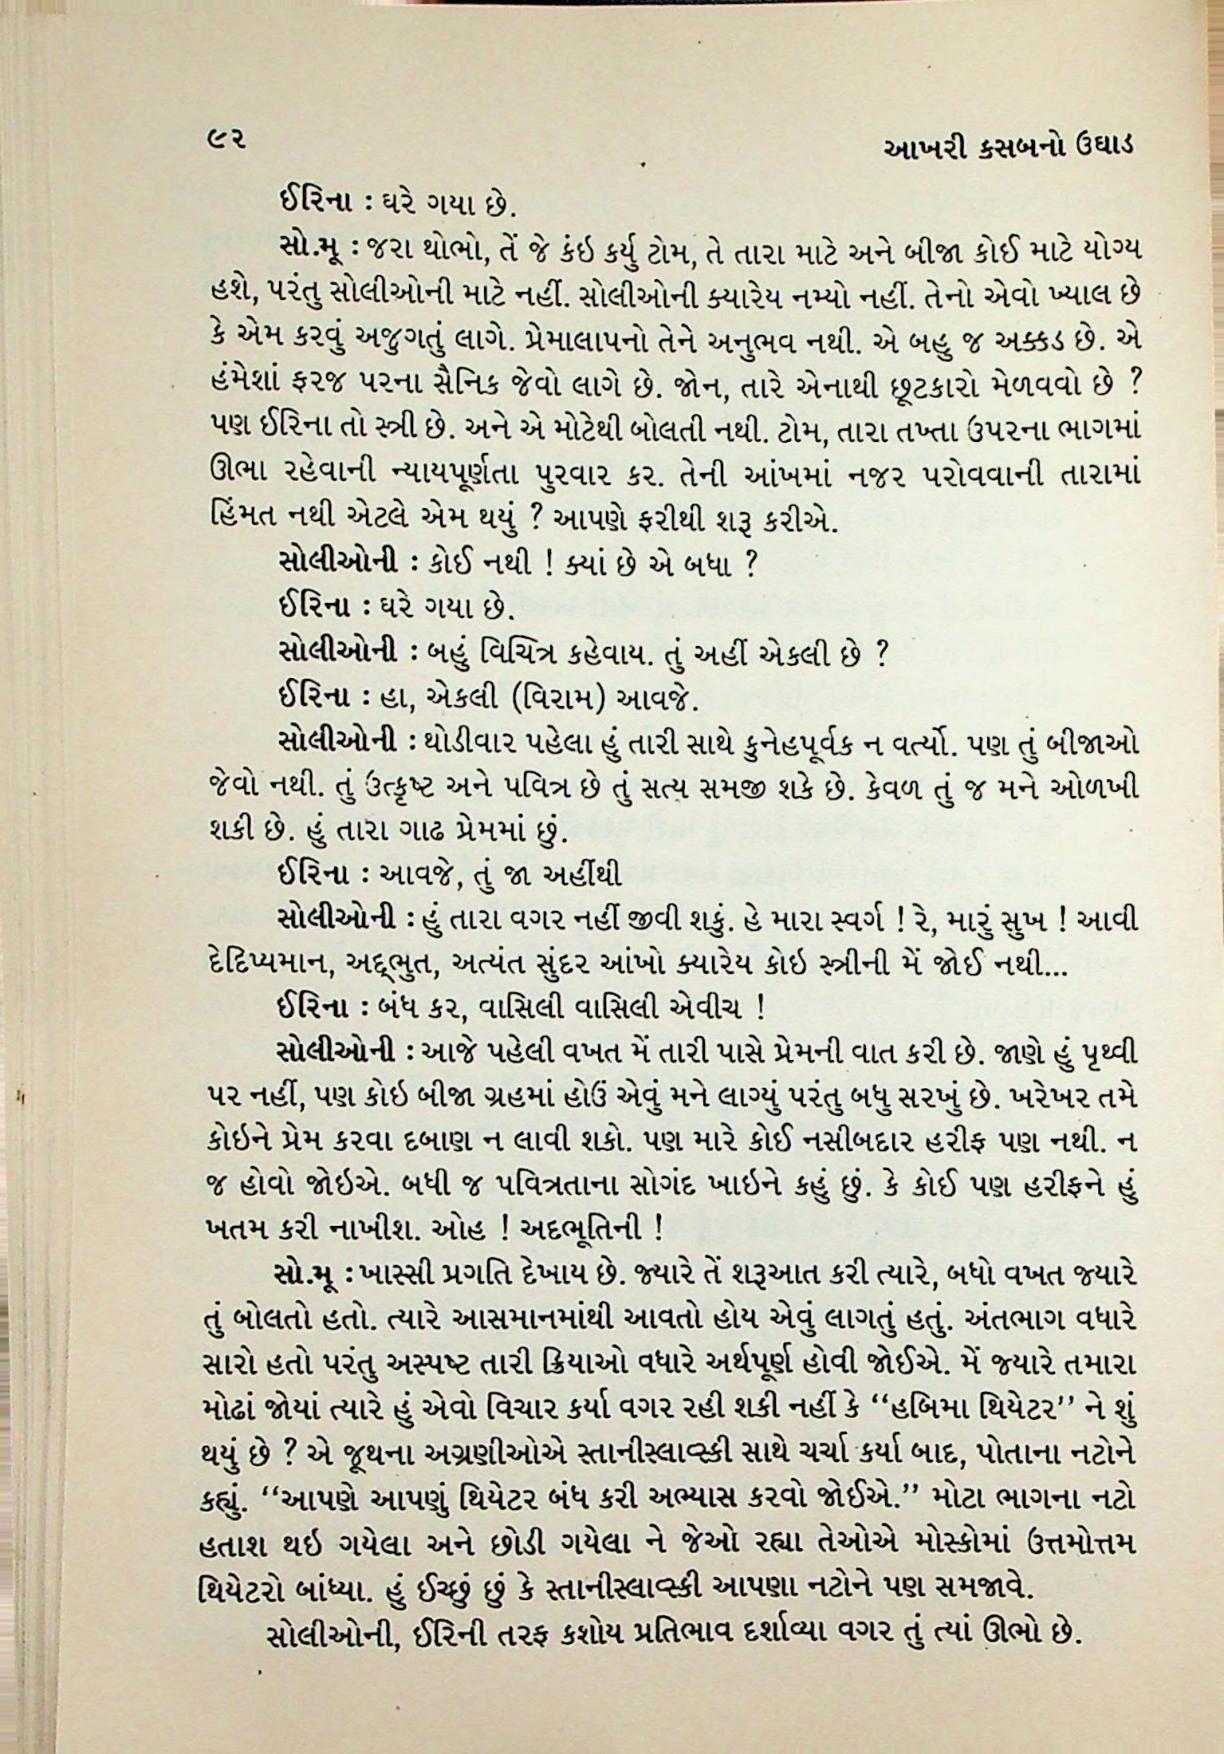 ૯૨
આખરી કસબનો ઉઘાડ
ઈરિના : ઘરે ગયા છે.
સો.મૂ : જરા થોભો, તેં જે કંઇ કર્યુ ટોમ, તે તારા માટે અને બીજા કોઈ માટે યોગ્ય
હશે, પરંતુ સોલીઓની માટે નહીં. સોલીઓની ક્યારેય નમ્યો નહીં. તેનો એવો ખ્યાલ છે
કે એમ કરવું અજુગતું લાગે. પ્રેમાલાપનો તેને અનુભવ નથી. એ બહુ જ અક્કડ છે. એ
હંમેશાં ફરજ પરના સૈનિક જેવો લાગે છે. જોન, તારે એનાથી છૂટકારો મેળવવો છે ?
પણ ઈરિના તો સ્ત્રી છે. અને એ મોટેથી બોલતી નથી. ટોમ, તારા તખ્તા ઉપરના ભાગમાં
ઊભા રહેવાની ન્યાયપૂર્ણતા પુરવાર કર. તેની આંખમાં નજર પરોવવાની તારામાં
હિંમત નથી એટલે એમ થયું ? આપણે ફરીથી શરૂ કરીએ.
સોલીઓની : કોઈ નથી ! ક્યાં છે એ બધા ?
ઈરિના : ઘરે ગયા છે.
સોલીઓની : બહું વિચિત્ર કહેવાય. તું અહીં એકલી છે ?
ઈરિના : હા, એકલી (વિરામ) આવજે.
સોલીઓની : થોડીવાર પહેલા હું તારી સાથે કુનેહપૂર્વક ન વર્ત્યો. પણ તું બીજાઓ
જેવો નથી. તું ઉત્કૃષ્ટ અને પવિત્ર છે તું સત્ય સમજી શકે છે. કેવળ તું જ મને ઓળખી
શકી છે. હું તારા ગાઢ પ્રેમમાં છું.
ઈરિના : આવજે, તું જા અહીંથી
સોલીઓની : હું તારા વગર નહીં જીવી શકું. હે મારા સ્વર્ગ ! રે, મારું સુખ ! આવી
દેદિપ્યમાન, અદ્ભુત, અત્યંત સુંદર આંખો ક્યારેય કોઇ સ્ત્રીની મેં જોઈ નથી...
ઈરિના : બંધ કર, વાસિલી વાસિલી એવીચ !
સોલીઓની : આજે પહેલી વખત મેં તારી પાસે પ્રેમની વાત કરી છે. જાણે હું પૃથ્વી
પર નહીં, પણ કોઇ બીજા ગ્રહમાં હોઉં એવું મને લાગ્યું પરંતુ બધુ સરખું છે. ખરેખર તમે
કોઇને પ્રેમ કરવા દબાણ ન લાવી શકો. પણ મારે કોઈ નસીબદાર હરીફ પણ નથી. ન
જ હોવો જોઇએ. બધી જ પવિત્રતાના સોગંદ ખાઇને કહું છું. કે કોઈ પણ હરીફને હું
ખતમ કરી નાખીશ. ઓહ ! અદભૂતિની !
સો.મૂ : ખાસ્સી પ્રગતિ દેખાય છે. જ્યારે તેં શરૂઆત કરી ત્યારે, બધો વખત જ્યારે
તું બોલતો હતો. ત્યારે આસમાનમાંથી આવતો હોય એવું લાગતું હતું. અંતભાગ વધારે
સારો હતો પરંતુ અસ્પષ્ટ તારી ક્રિયાઓ વધારે અર્થપૂર્ણ હોવી જોઈએ. મેં જ્યારે તમારા
મોઢાં જોયાં ત્યારે હું એવો વિચાર કર્યા વગર રહી શકી નહીં કે ‘‘હબિમા થિયેટર’’ ને શું
થયું છે ? એ જૂથના અગ્રણીઓએ સ્તાનીસ્લાવ્સ્કી સાથે ચર્ચા કર્યા બાદ, પોતાના નટોને
કહ્યું. ‘‘આપણે આપણું થિયેટર બંધ કરી અભ્યાસ કરવો જોઈએ.’’ મોટા ભાગના નટો
હતાશ થઇ ગયેલા અને છોડી ગયેલા ને જેઓ રહ્યા તેઓએ મોસ્કોમાં ઉત્તમોત્તમ
થિયેટરો બાંધ્યા. હું ઈચ્છું છું કે સ્તાનીસ્લાવ્સ્કી આપણા નટોને પણ સમજાવે.
સોલીઓની, ઈરિની તરફ કશોય પ્રતિભાવ દર્શાવ્યા વગર તું ત્યાં ઊભો છે.